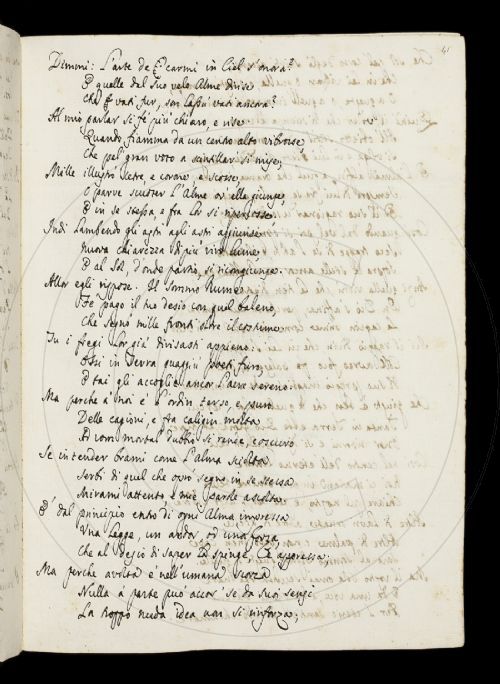 41
Dimmi: L'arte de' carmi in Ciel s'onora?
E quelle dal suo velo Alme divise
Che vati fur, son lassù vati ancora?
Al mio parlar si fe più chiaro, e rise
Quando fiamma da un centro alto vibrosse
Che pel gran voto a scintillar si mise;
Mille illustri cetre, e corone, e scosse
O parve scuoter l'Alme or' ella giunge,
E in se stessa, e fra lor si ripercosse
Indi lambendo gli astri agli astri aggiunse
Nuova chiarezza di più vivo lume
E al Sol, d'onde partio, si ricongiunse.
Allor egli rispose. Il sommo Nume
Fe' pago il tuo desio con quel baleno,
Che segno mille fronti oltre il costume.
Tu i fregi lor già divisasti appieno:
Essi in terra quaggiù poeti furo,
E tai gli accoglie ancor l'aere sereno.
Ma perchè a noi è l'ordin terso, e puro
Delle cagioni, e fra caligin molta
Ad uom mortal dubbio si rende, e oscuro
Se intender brami come l'alma sciolta
Serbi di quel che oprò segno in se stessa
Mirami attento e mie parole ascolta.
E' dal principio entro di ogni Alma impressa
Una Legge, un ardor, od una forza,
Che al desio di saper la spinge, e appressa;
Ma perche avvolta è nell'umana scorza
Nulla a parte può accor' se da suoi sensi
La troppo nuda idea non si rinforza;